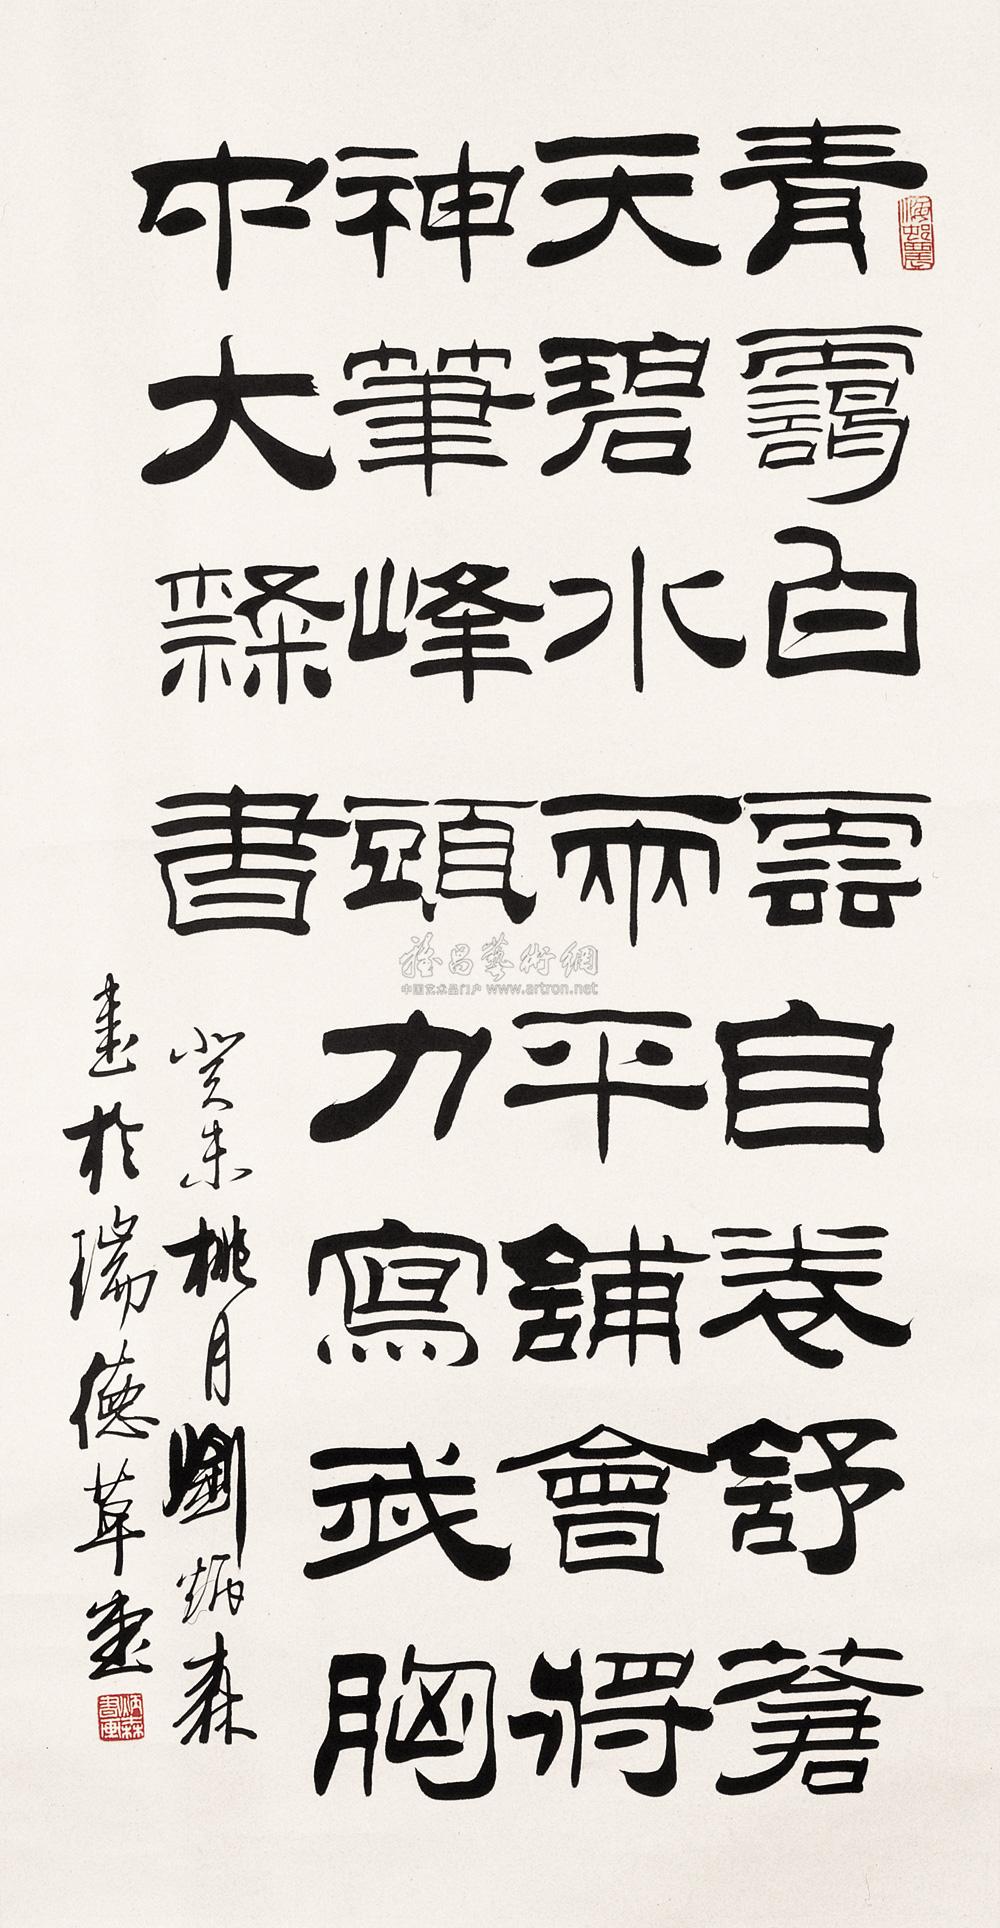 青靄白雲自卷舒蒼
天碧水兩平鋪會將
神筆峰頭力寫我胸
中大𣜩書
癸未桃月劉炳森
書於瑞德草堂
炳森書畫
雅昌藝術網
中国艺术品门户 www.artron.net